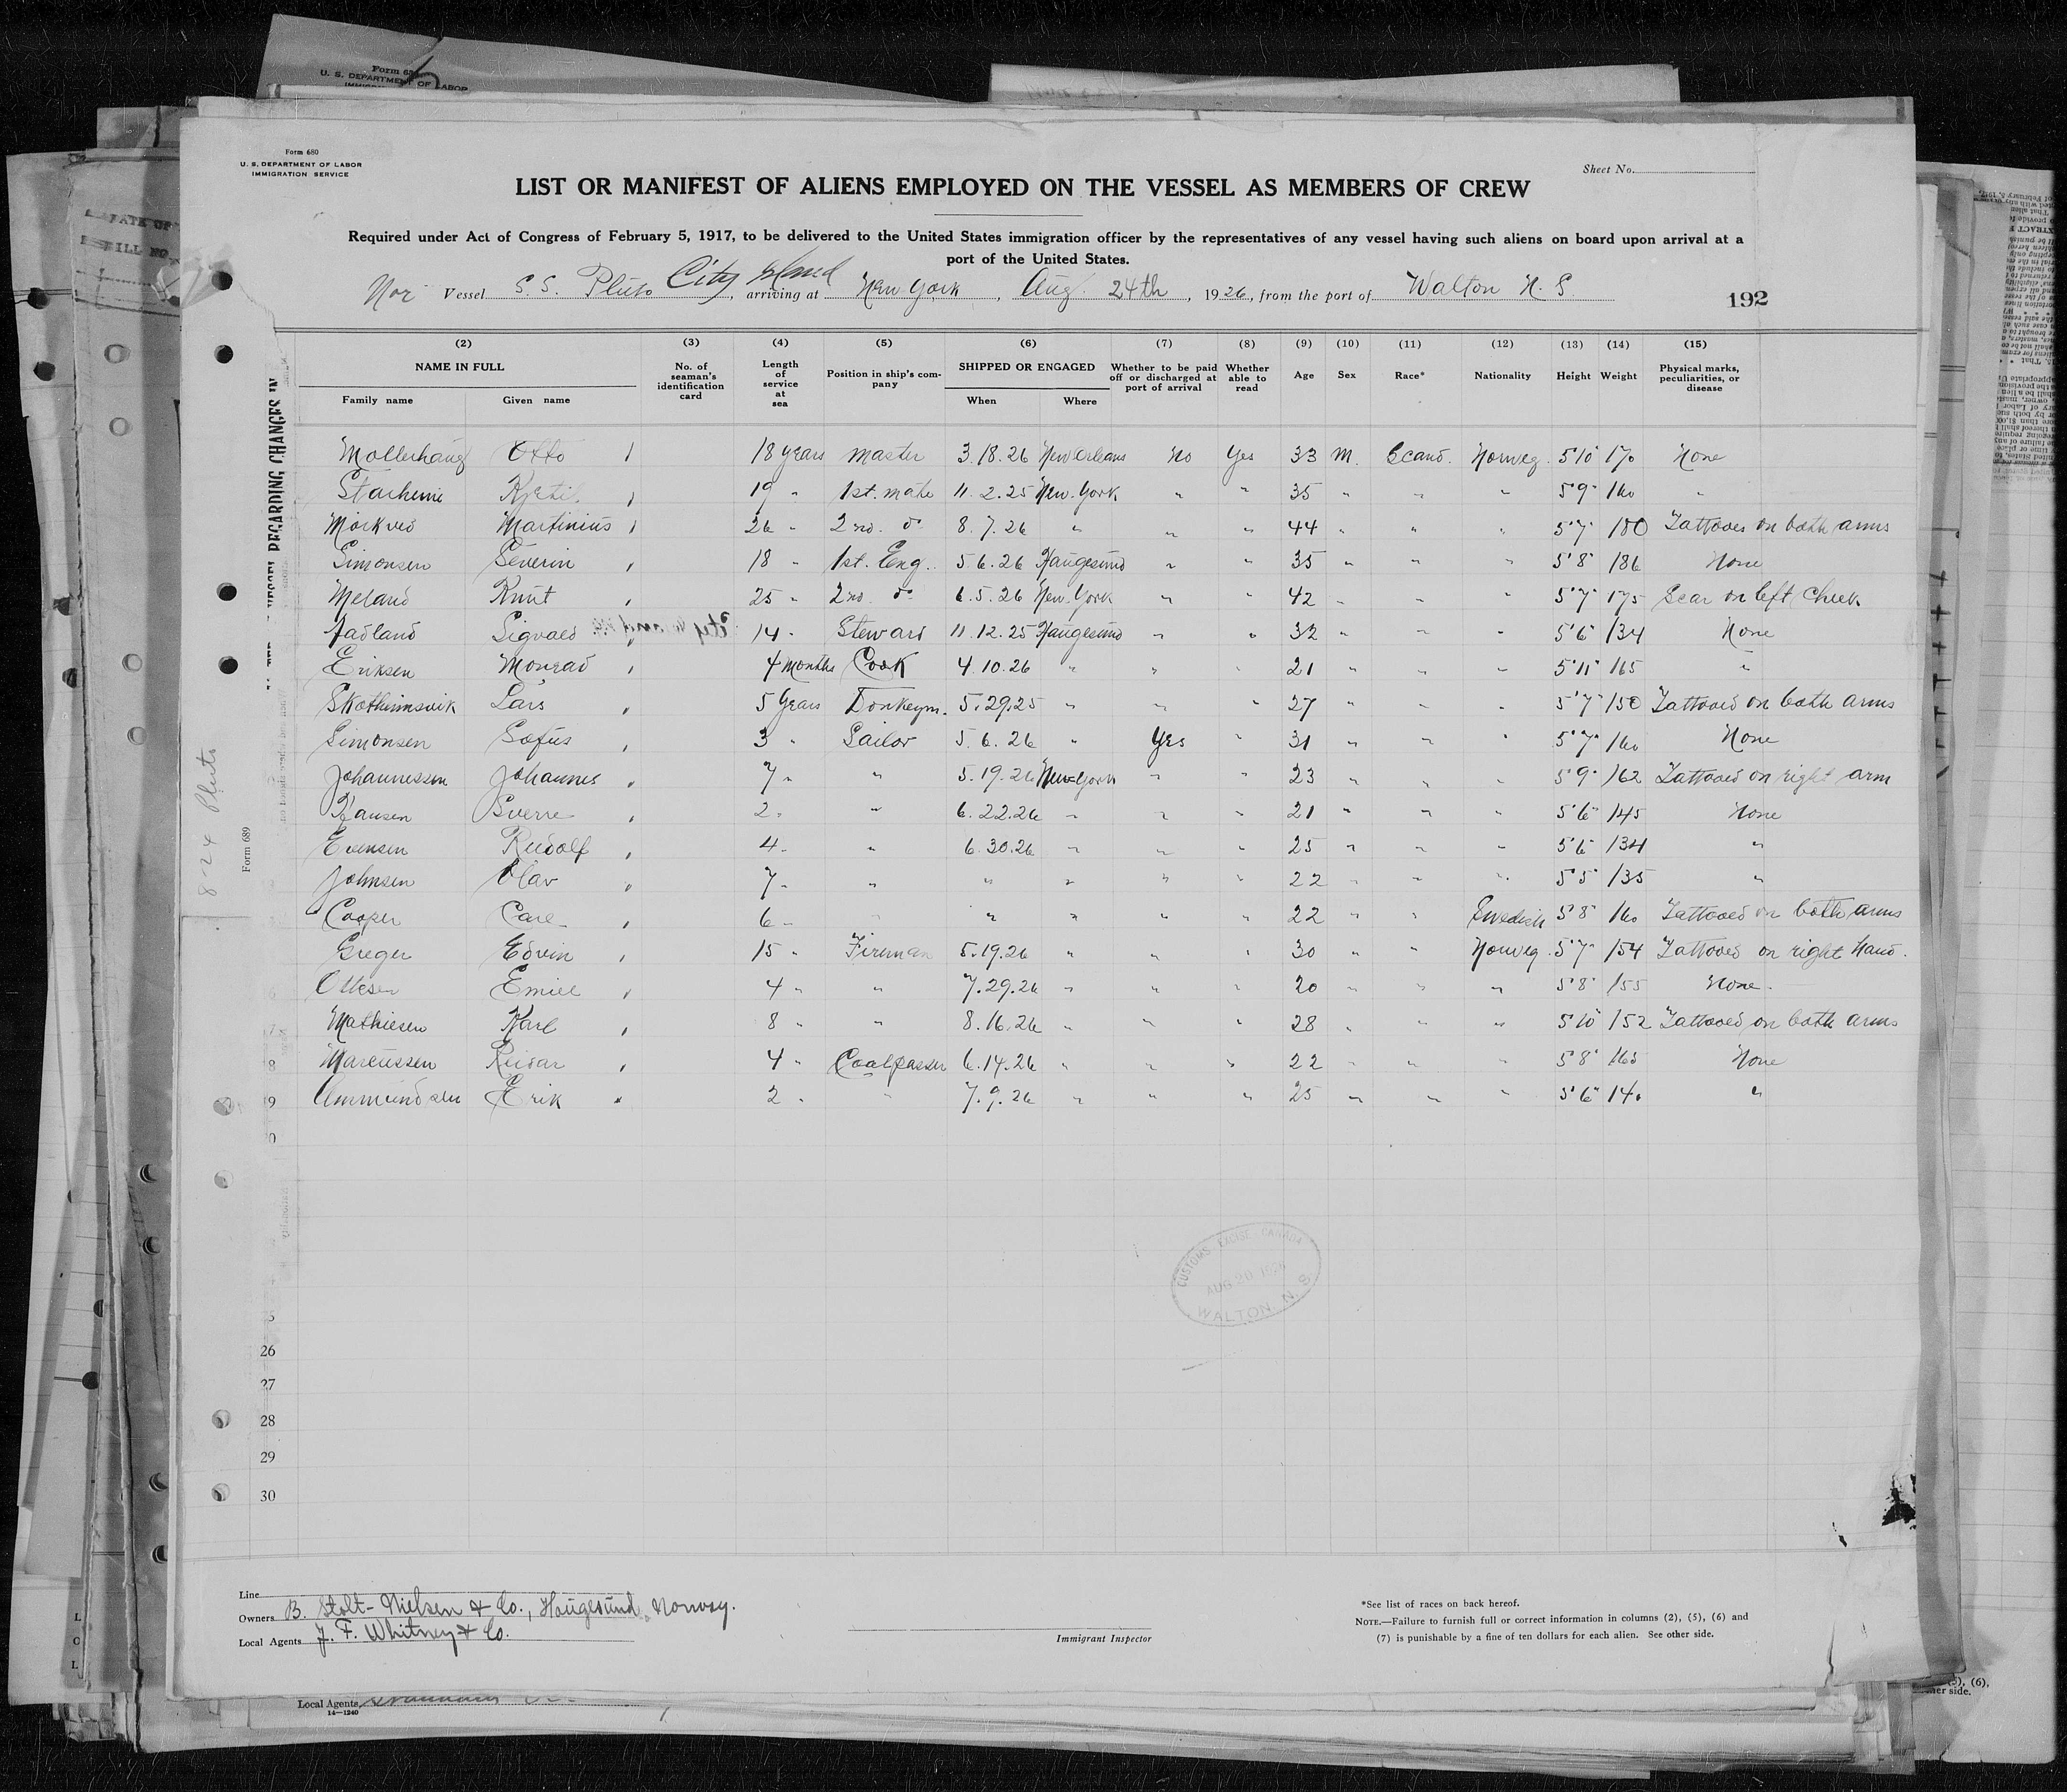 Form 680
U. S. DEPARTMENT OF LABOR
IMMIGRATION SERVICE
Sheet No.
LIST OR MANIFEST OF ALIENS EMPLOYED ON THE VESSEL AS MEMBERS OF CREW
Required under Act of Congress of February 5, 1917, to be delivered to the United States immigration officer by the representatives of any vessel having such aliens on board upon arrival at a
port of the United States.
Nor Vessel S.S. Pluto City Island, arriving at New York, Aug. 24th, 1926, from the port of Walton N.S. 192
(2) (3) (4) (5) (6) (7) (8) (9) (10) (11) (12) (13) (14) (15)
NAME IN FULL No. of seaman's identification card Length of service at sea Position in ship's company SHIPPED OR ENGAGED Whether to be paid off or discharged at port of arrival Whether able to read Age Sex Race* Nationality Height Weight Physical marks, peculiarities, or disease
Family name Given name When Where
Mollerhaug Otto 18 years master 3.18.26 New Orleans No Yes 33 M. Scand. Norweg. 5'10" 170 None
Kjetil 19 " 1st. mate 11.2.25 New-York " " 35 " " " 5'9" 160 "
Morkved Martinius 26 " 2nd. do 8.7.26 " " " 44 " " " 5'7" 180 Tattooes on both arms
Simonsen Severin 18 " 1st. Eng. 5.6.26 Haugesund " " 35 " " " 5'8" 186 None
Meland Knut 25 " 2nd do 6.5.26 New-York " " 42 " " " 5'7" 175 Scar on left Cheek
Fadland Sigvald 14 " Steward 11.12.25 Haugesund " " 32 " " " 5'6" 134 None
Eriksen Monrad 4 months Cook 4.10.26 " " " 21 " " " 5'11" 165 "
Skotheimsvik Lars 5 Years Donkeym. 5.29.25 " " " 27 " " " 5'7" 150 Tattooed on both arms
Simonsen Sofus 3 " Sailor 5.6.26 " Yes " 31 " " " 5'7" 160 None
Johannessen Johannes 7 " " 5.19.26 New-York " " 23 " " " 5'9" 162 Tattooed on right arm
Hansen Sverre 2 " " 6.22.26 " " " 21 " " " 5'6" 145 None
Evensen Rudolf 4 " " 6.30.26 " " " 25 " " " 5'6" 134 "
Johnsen Olav 7 " " " " " " 22 " " " 5'5" 135 "
Cooper Carl 6 " " " " " " 22 " " Swedish 5'8" 160 Tattooed on both arms
Greger Edvin 15 " Fireman 5.19.26 " " " 30 " " Norweg. 5'7" 154 Tattooed on right hand.
Ottesen Emiel 4 " " 7.29.26 " " " 20 " " " 5'8" 155 None.
Mathiesen Karl 8 " " 8.16.26 " " " 28 " " " 5'10" 152 Tattooed on both arms
Marcussen Reidar 4 " Coalpasser 6.14.26 " " " 22 " " " 5'8" 165 None
Ammundsen Erik 2 " " 7.9.26 " " " 25 " " " 5'6" 140 "
26
27
28
29
30
8-24 Pluto
Form 689
CUSTOMS EXCISE CANADA
AUG 20 1926
WALTON N. S.
Line
Owners B. Stolt-Nielsen & Co., Haugesund, Norway.
Local Agents J. F. Whitney & Co.
Immigrant Inspector
*See list of races on back hereof.
NOTE.—Failure to furnish full or correct information in columns (2), (5), (6) and
(7) is punishable by a fine of ten dollars for each alien. See other side.
Local Agents
14—1240